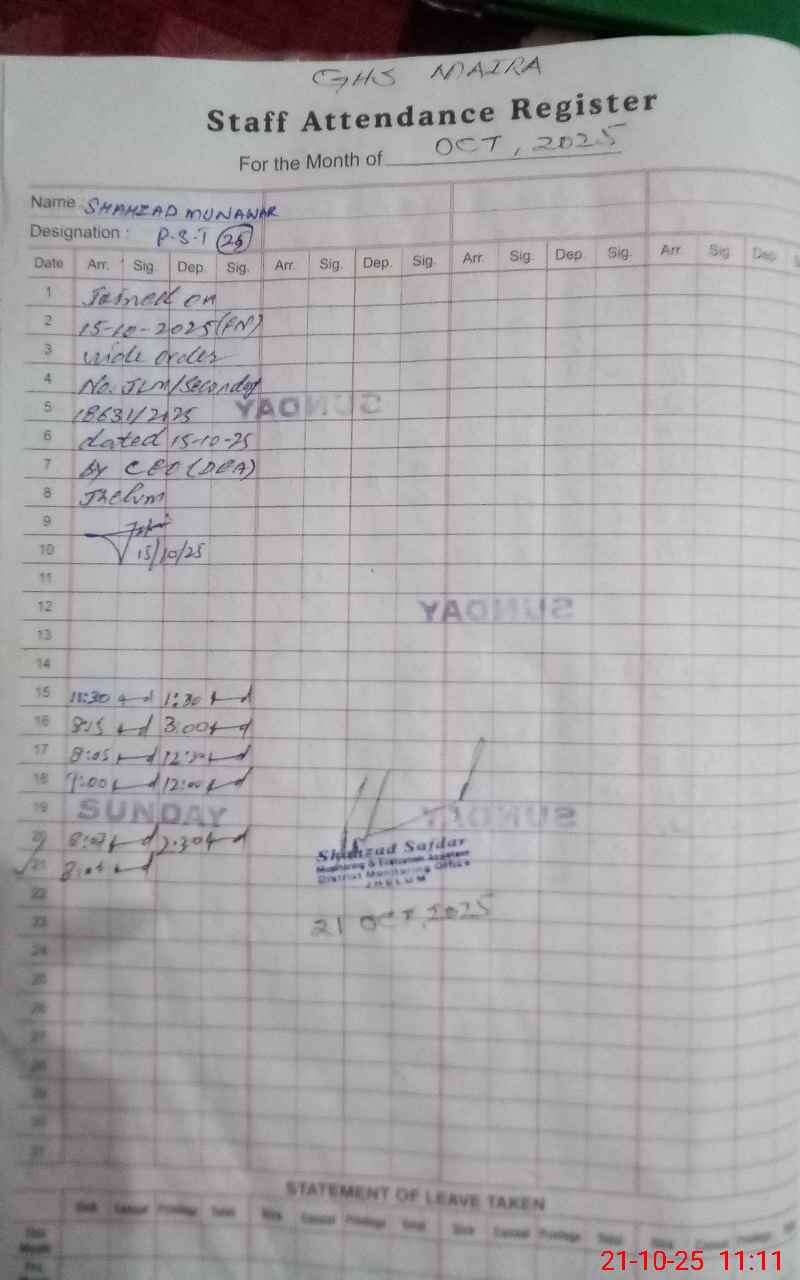 GHS MAIRA
Staff Attendance Register
For the Month of OCT, 2025
Name SHAHZAD MUNAWAR
Designation : P.S.T (25)
Date Arr. Sig. Dep. Sig. Arr. Sig. Dep. Sig. Arr. Sig. Dep. Sig. Arr. Sig. Dep.
1 on
2 15-10-2025 (FN)
3 wide order
4 No. JLM/Secondry
5 18631/2025 SUNDAY
6 dated 15-10-25
7 By CEO (DEA)
8 Jhelum
9
10 15/10/25
11
12 SUNDAY
13
14
15 11:30 1:30
16 8:15 3:00
17 8:05
18 9:00 12:00
19 SUNDAY SUNDAY
20 8:07 2:30
21
Shahzad Safdar
Monitoring & Evaluation Assistant
District Monitoring Office
JHELUM
22
23 21 OCT, 2025
24
25
26
27
28
29
30
31
STATEMENT OF LEAVE TAKEN
Sick Casual Privilege Total Sick Casual Privilege Total Sick Casual Privilege Total Sick Casual Privilege
This Month
21-10-25 11:11